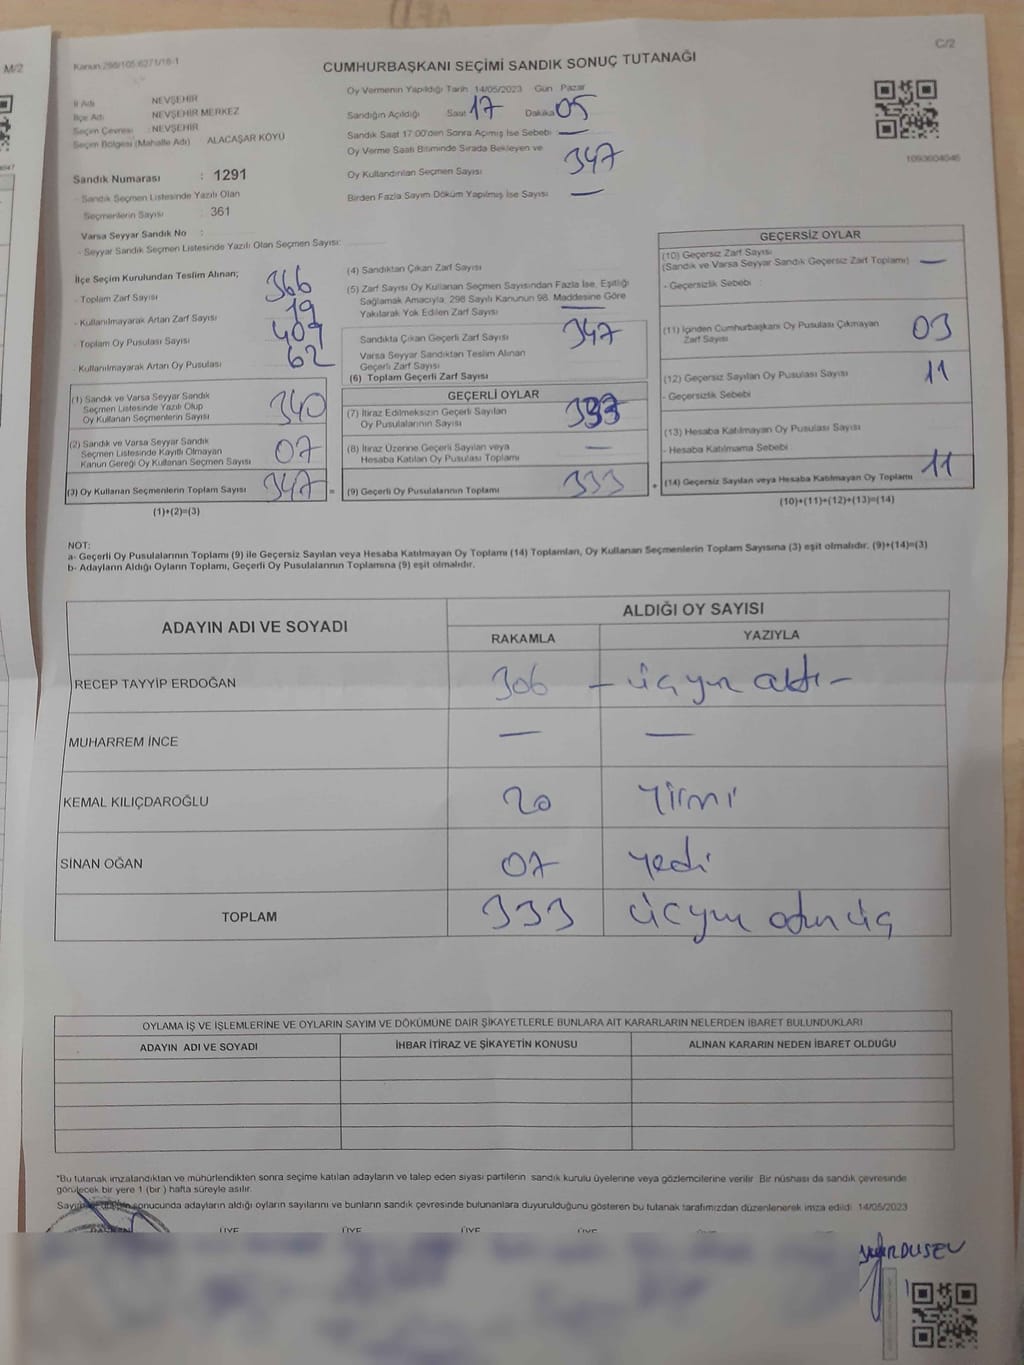 M/2
C/2
Kanun 298/105.6271/18-1
CUMHURBAŞKANI SEÇİMİ SANDIK SONUÇ TUTANAĞI
İl Adı NEVŞEHİR
İlçe Adı NEVŞEHİR MERKEZ
Seçim Çevresi : NEVŞEHİR
Seçim Bölgesi (Mahalle Adı) ALACAŞAR KÖYÜ
Sandık Numarası : 1291
- Sandık Seçmen Listesinde Yazılı Olan
Seçmenlerin Sayısı : 361
Varsa Seyyar Sandık No :
- Seyyar Sandık Seçmen Listesinde Yazılı Olan Seçmen Sayısı:
Oy Vermenin Yapıldığı Tarih 14/05/2023 Gün Pazar
Sandığın Açıldığı Saat 17 Dakika 05
Sandık Saat 17:00'den Sonra Açımış İse Sebebi —
Oy Verme Saati Bitiminde Sırada Bekleyen ve
Oy Kullandırılan Seçmen Sayısı 347
Birden Fazla Sayım Döküm Yapılmış İse Sayısı —
1093604046
İlçe Seçim Kurulundan Teslim Alınan;
- Toplam Zarf Sayısı 366
- Kullanılmayarak Artan Zarf Sayısı 19
- Toplam Oy Pusulası Sayısı 409
- Kullanılmayarak Artan Oy Pusulası 62
(1) Sandık ve Varsa Seyyar Sandık
Seçmen Listesinde Yazılı Olup
Oy Kullanan Seçmenlerin Sayısı 340
(2) Sandık ve Varsa Seyyar Sandık
Seçmen Listesinde Kayıtlı Olmayan
Kanun Gereği Oy Kullanan Seçmen Sayısı 07
(3) Oy Kullanan Seçmenlerin Toplam Sayısı 347 =
(1)+(2)=(3)
(4) Sandıktan Çıkan Zarf Sayısı
(5) Zarf Sayısı Oy Kullanan Seçmen Sayısından Fazla İse, Eşitliği
Sağlamak Amacıyla, 298 Sayılı Kanunun 98. Maddesine Göre
Yakılarak Yok Edilen Zarf Sayısı —
Sandıkta Çıkan Geçerli Zarf Sayısı 347
Varsa Seyyar Sandıktan Teslim Alınan
Geçerli Zarf Sayısı
(6) Toplam Geçerli Zarf Sayısı
GEÇERLİ OYLAR
(7) İtiraz Edilmeksizin Geçerli Sayılan
Oy Pusulalarının Sayısı 333
(8) İtiraz Üzerine Geçerli Sayılan veya
Hesaba Katılan Oy Pusulası Toplamı —
(9) Geçerli Oy Pusulalarının Toplamı 333 +
GEÇERSİZ OYLAR
(10) Geçersiz Zarf Sayısı
(Sandık ve Varsa Seyyar Sandık Geçersiz Zarf Toplamı) —
- Geçersizlik Sebebi :
(11) İçinden Cumhurbaşkanı Oy Pusulası Çıkmayan
Zarf Sayısı 03
(12) Geçersiz Sayılan Oy Pusulası Sayısı 11
- Geçersizlik Sebebi
(13) Hesaba Katılmayan Oy Pusulası Sayısı
- Hesaba Katılmama Sebebi
(14) Geçersiz Sayılan veya Hesaba Katılmayan Oy Toplamı 11
(10)+(11)+(12)+(13)=(14)
NOT:
a- Geçerli Oy Pusulalarının Toplamı (9) ile Geçersiz Sayılan veya Hesaba Katılmayan Oy Toplamı (14) Toplamları, Oy Kullanan Seçmenlerin Toplam Sayısına (3) eşit olmalıdır. (9)+(14)=(3)
b- Adayların Aldığı Oyların Toplamı, Geçerli Oy Pusulalarının Toplamına (9) eşit olmalıdır.
ADAYIN ADI VE SOYADI
ALDIĞI OY SAYISI
RAKAMLA YAZIYLA
RECEP TAYYİP ERDOĞAN 306 — üçyüz altı —
MUHARREM İNCE — —
KEMAL KILIÇDAROĞLU 20 Yirmi
SİNAN OĞAN 07 yedi
TOPLAM 333 üçyüz otuz üç
OYLAMA İŞ VE İŞLEMLERİNE VE OYLARIN SAYIM VE DÖKÜMÜNE DAİR ŞİKAYETLERLE BUNLARA AİT KARARLARIN NELERDEN İBARET BULUNDUKLARI
ADAYIN ADI VE SOYADI İHBAR İTİRAZ VE ŞİKAYETİN KONUSU ALINAN KARARIN NEDEN İBARET OLDUĞU
*Bu tutanak imzalandıktan ve mühürlendikten sonra seçime katılan adayların ve talep eden siyasi partilerin sandık kurulu üyelerine veya gözlemcilerine verilir. Bir nüshası da sandık çevresinde
görülecek bir yere 1 (bir) hafta süreyle asılır.
sonucunda adayların aldığı oyların sayılarını ve bunların sandık çevresinde bulunanlara duyurulduğunu gösteren bu tutanak tarafımızdan düzenlenerek imza edildi. 14/05/2023
ÜYE ÜYE ÜYE ÜYE ÜYE